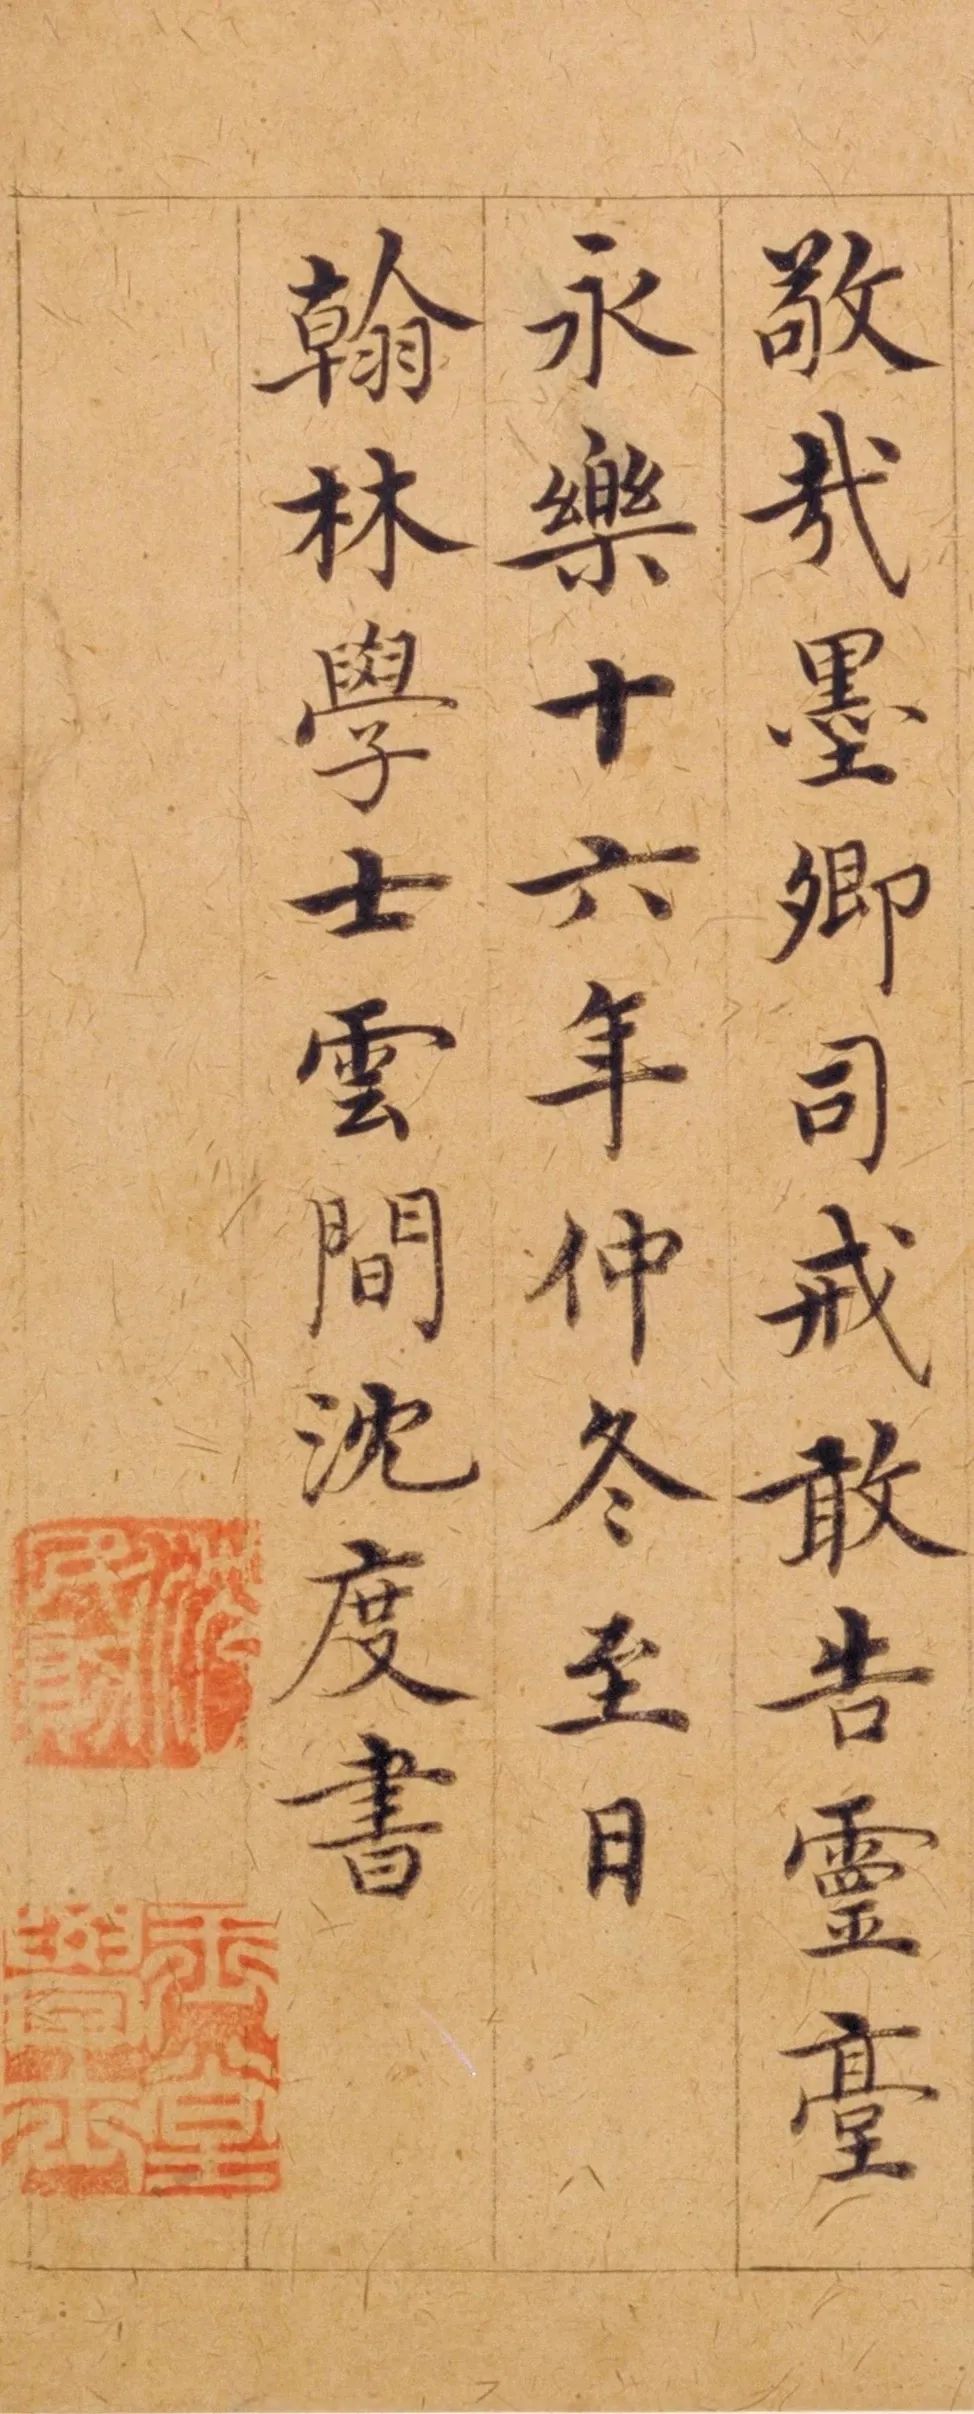 敬哉墨卿司戒敢告靈臺
永樂十六年仲冬至日
翰林學士雲間沈度書